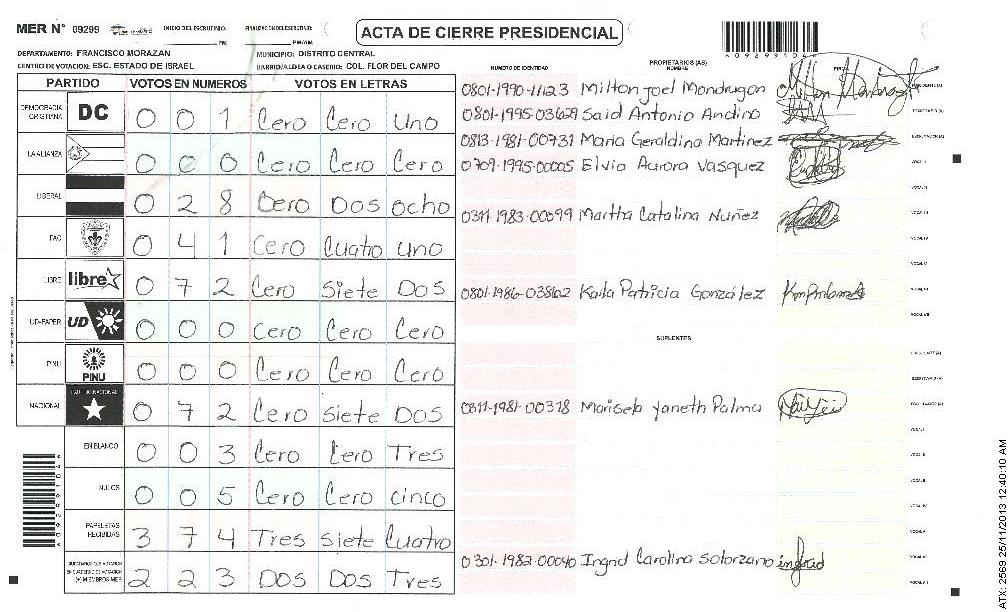 MER N° 09299 INICIO DEL ESCRUTINIO: PM FINALIZACION DEL ESCRUTINIO: PM/AM ACTA DE CIERRE PRESIDENCIAL
DEPARTAMENTO: FRANCISCO MORAZAN MUNICIPIO: DISTRITO CENTRAL
CENTRO DE VOTACION: ESC. ESTADO DE ISRAEL BARRIO/ALDEA O CASERIO: COL. FLOR DEL CAMPO
PARTIDO VOTOS EN NUMEROS VOTOS EN LETRAS
DEMOCRACIA CRISTIANA DC 0 0 1 Cero Cero Uno
LA ALIANZA 0 0 0 Cero Cero Cero
LIBERAL 0 2 8 Cero Dos ocho
PAC 0 4 1 Cero Cuatro uno
LIBRE libre 0 7 2 Cero Siete Dos
UD-FAPER UD 0 0 0 Cero Cero Cero
PINU PINU 0 0 0 Cero Cero Cero
NACIONAL 0 7 2 Cero Siete Dos
EN BLANCO 0 0 3 Cero Cero Tres
NULOS 0 0 5 Cero Cero cinco
PAPELETAS RECIBIDAS 3 7 4 Tres siete Cuatro
(+) MIEMBROS MER 2 2 3 Dos Dos Tres
NUMERO DE IDENTIDAD PROPIETARIOS (AS) NOMBRE
0801-1990-11123 Milton Joel Mondragon
0801-1995-03629 Said Antonio Andino
0813-1981-00731 Maria Geraldina Martinez
0709-1995-00005 Elvia Aurora Vasquez
Martha Catalina Nuñez
0801-1986-03862 Karla Patricia González
SUPLENTES
Marisela Yaneth Palma
0301-1982-00040 Ingrid Carolina Solorzano ingrid
ATX: 2569 25/11/2013 12:40:10 AM